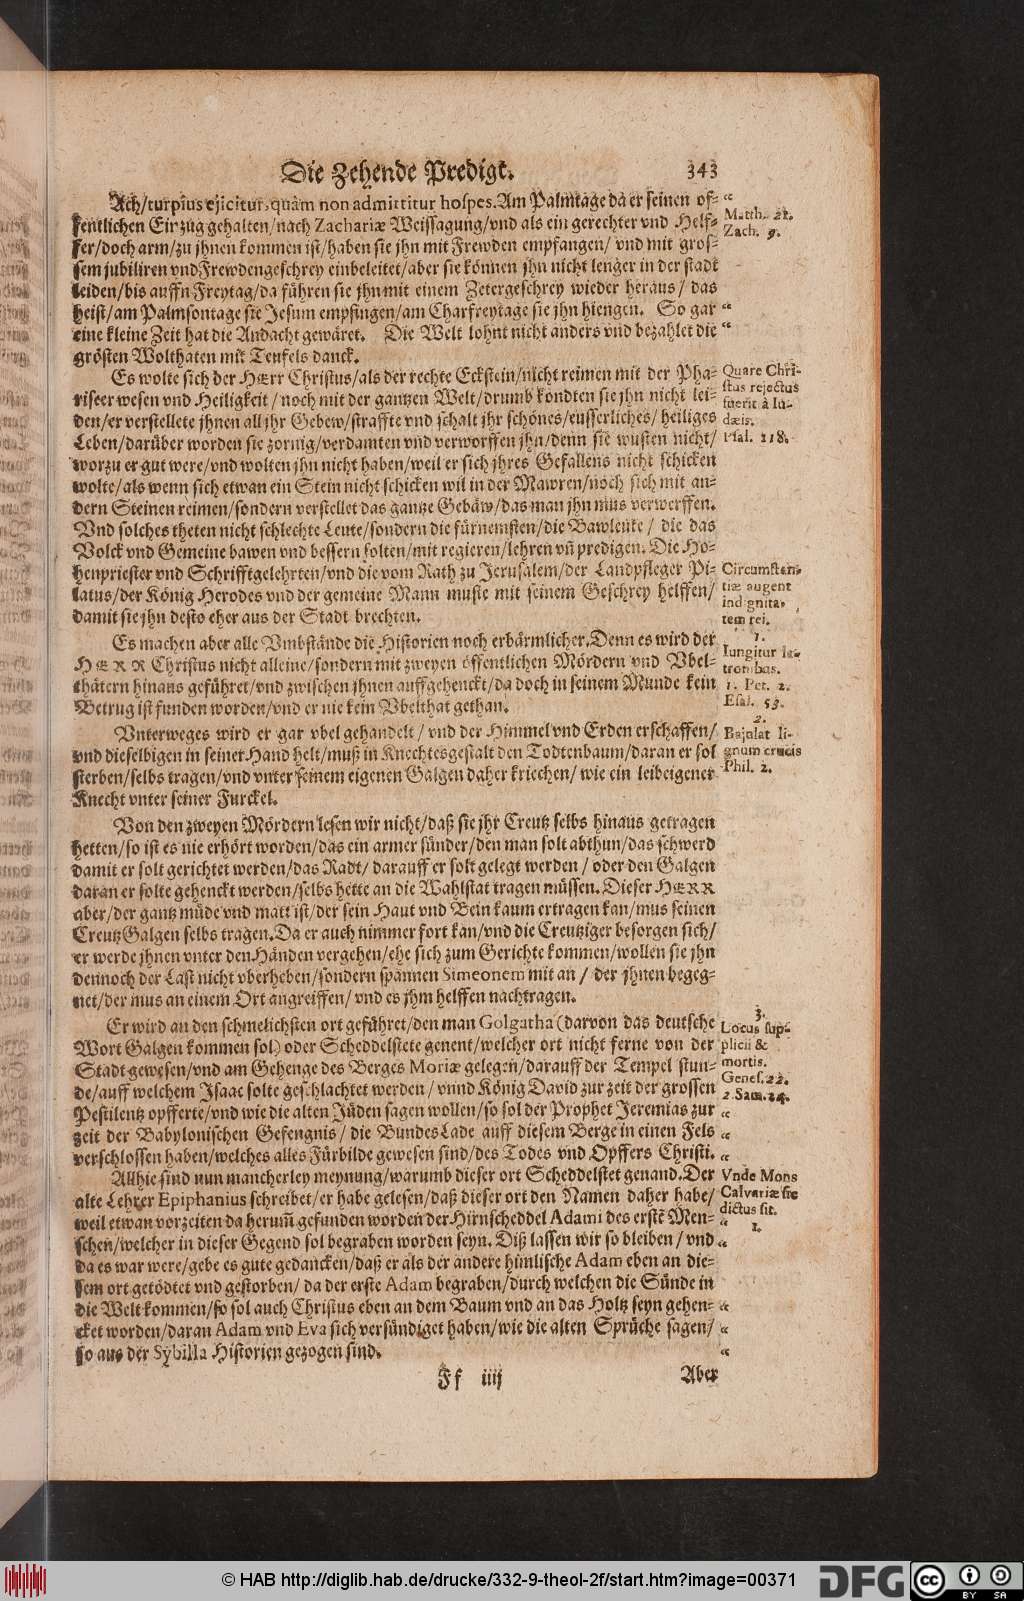 Die Zehende Predigt. 343
Ach/turpius ejicitur, quàm non admittitur hospes. Am Palmtage da er seinen of-
fentlichen Einzug gehalten/nach Zachariæ Weissagung/vnd als ein gerechter vnd Helf-
fer/doch arm/zu jhnen kommen ist/haben sie jhn mit Frewden empfangen/ vnd mit gros-
sem jubiliren vnd Frewdengeschrey einbeleitet/aber sie können jhn nicht lenger in der stadt
leiden/bis auffn Freytag/da führen sie jhn mit einem Zetergeschrey wieder heraus/ das
heist/am Palmsontage sie Jesum empfingen/am Charfreytage sie jhn hiengen. So gar
eine kleine Zeit hat die Andacht gewäret. Die Welt lohnt nicht anders vnd bezahlet die
grösten Wolthaten mit Teufels danck.
Matth. 21.
Zach. 9.
Es wolte sich der HErr Christus/als der rechte Eckstein/nicht reimen mit der Pha-
riseer wesen vnd Heiligkeit/noch mit der gantzen Welt/drumb kondten sie jhn nicht lei-
den/er verstellete jhnen all jhr Gebew/straffte vnd schalt jhr schönes/eusserliches/heiliges
Leben/darüber worden sie zornig/verdamten vnd verworffen jhn/denn sie wusten nicht/
worzu er gut were/vnd wolten jhn nicht haben/weil er sich jhres Gefallens nicht schicken
wolte/als wenn sich etwan ein Stein nicht schicken wil in der Mawren/noch sich mit an-
dern Steinen reimen/sondern verstellet das gantze Gebäw/das man jhn mus verwerffen.
Vnd solches theten nicht schlechte Leute/sondern die fürnemsten/die Bawleute/ die das
Volck vnd Gemeine bawen vnd bessern solten/mit regieren/lehren vñ predigen. Die Ho-
henpriester vnd Schrifftgelehrten/vnd die vom Rath zu Jerusalem/der Landpfleger Pi-
latus/der König Herodes vnd der gemeine Mann muste mit seinem Geschrey helffen/
damit sie jhn desto eher aus der Stadt brechten.
Quare Chri-
stus rejectus
fuerit à Iu-
dæis.
Psal. 118.
Circumstan-
tiæ augent
indignita-
tem rei.
Es machen aber alle Vmbstände die Historien noch erbärmlicher. Denn es wird der
HERR Christus nicht alleine/sondern mit zweyen öffentlichen Mördern vnd Vbel-
thätern hinaus geführet/vnd zwischen jhnen auffgehenckt/da doch in seinem Munde kein
Betrug ist funden worden/vnd er nie kein Vbelthat gethan.
1.
Iungitur la-
tronibus.
1. Pet. 2.
Esai. 53.
Vnterweges wird er gar vbel gehandelt/ vnd der Himmel vnd Erden erschaffen/
vnd dieselbigen in seiner Hand helt/muß in Knechtesgestalt den Todtenbaum/daran er sol
sterben/selbs tragen/vnd vnter seinem eigenen Galgen daher kriechen/ wie ein leibeigener
Knecht vnter seiner Furckel.
2.
Bajulat li-
gnum crucis
Phil. 2.
Von den zweyen Mördern lesen wir nicht/daß sie jhr Creutz selbs hinaus getragen
hetten/so ist es nie erhört worden/das ein armer sünder/den man solt abthun/das schwerd
damit er solt gerichtet werden/das Radt/ darauff er solt gelegt werden/ oder den Galgen
daran er solte gehenckt werden/selbs hette an die Wahlstat tragen müssen. Dieser HERR
aber/der gantz müde vnd matt ist/der sein Haut vnd Bein kaum ertragen kan/mus seinen
CreutzGalgen selbs tragen. Da er auch nimmer fort kan/vnd die Creutziger besorgen sich/
er werde jhnen vnter den Händen vergehen/ehe sich zum Gerichte kommen/wollen sie jhn
dennoch der Last nicht vberheben/sondern spannen Simeonem mit an/ der jhnen begeg-
net/der mus an einem Ort angreiffen/ vnd es jhm helffen nachtragen.
Er wird an den schmelichsten ort geführet/den man Golgatha (darvon das deutsche
Wort Galgen kommen sol) oder Scheddelstete genent/welcher ort nicht ferne von der
Stadt gewesen/vnd am Gehenge des Berges Moriæ gelegen/darauff der Tempel stun-
de/auff welchem Isaac solte geschlachtet werden/ vnnd König David zur zeit der grossen
Pestilentz opfferte/vnd wie die alten Jüden sagen wollen/so sol der Prophet Jeremias zur
zeit der Babylonischen Gefengnis/ die BundesLade auff diesem Berge in einen Fels
verschlossen haben/welches alles Fürbilde gewesen sind/des Todes vnd Opffers Christi.
3.
Locus sup-
plicii &
mortis.
Genes. 22.
2. Sam. 24.
Allhie sind nun mancherley meynung/warumb dieser ort Scheddelstet genand. Der
alte Lehrer Epiphanius schreibet/er habe gelesen/daß dieser ort den Namen daher habe/
weil etwan vorzeiten da herum̃ gefunden worden der Hirnscheddel Adami des erstẽ Men-
schen/welcher in dieser Gegend sol begraben worden seyn. Diß lassen wir so bleiben/ vnd
da es war were/gebe es gute gedancken/daß er als der andere himlische Adam eben an die-
sem ort getödtet vnd gestorben/ da der erste Adam begraben/durch welchen die Sünde in
die Welt kommen/so sol auch Christus eben an dem Baum vnd an das Holtz seyn gehen-
cket worden/daran Adam vnd Eva sich versündiget haben/wie die alten Sprüche sagen/
so aus der Sybilla Historien gezogen sind.
Vnde Mons
Calvariæ sic
dictus sit.
1.
Ff iiij Aber
© HAB http://diglib.hab.de/drucke/332-9-theol-2f/start.htm?image=00371
DFG
cc BY SA